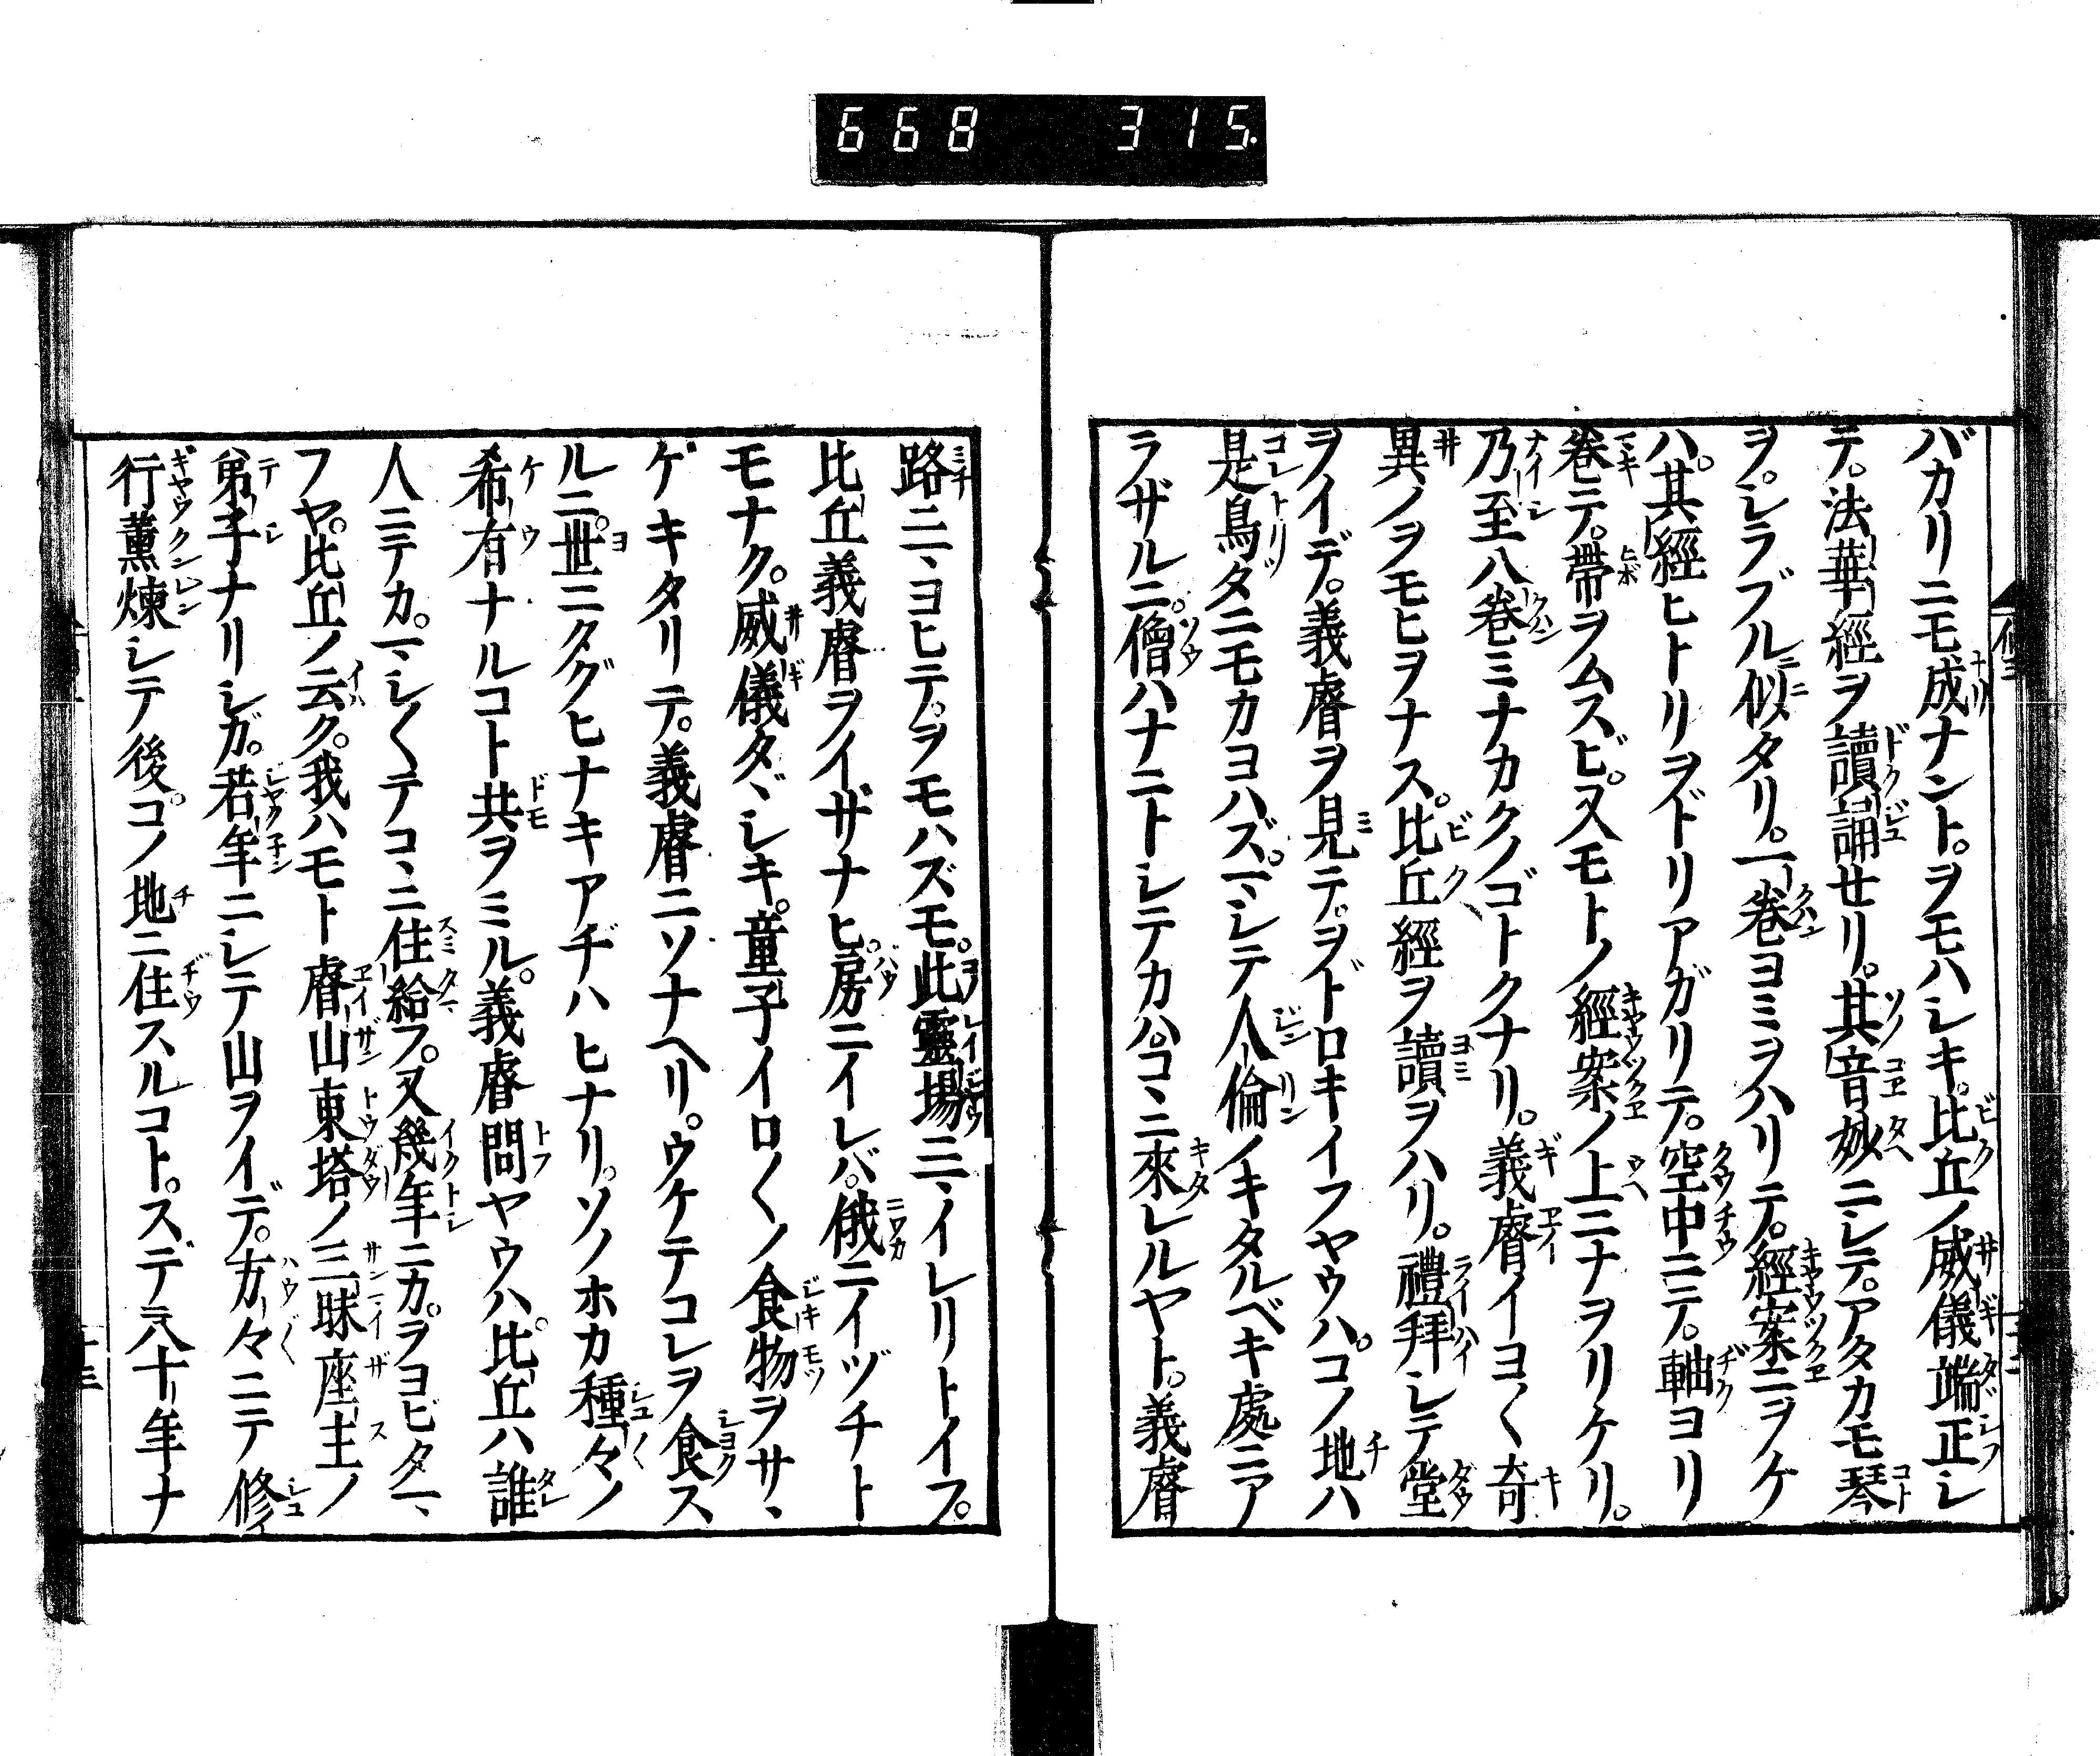 668 315
バカリニモ成ナント。ヲモハシキ。比丘ノ威儀端正シ
テ。法華經ヲ讀誦セリ。其音妙ニシテ。アタカモ琴
ヲ。シラブルニ似タリ。一卷ヨミヲハリテ。經案ニヲケ
ハ。其經ヒトリヲドリアガリテ。空中ニテ。軸ヨリ
卷テ。帶ヲムスビ。又モトノ經案ノ上ニナヲリケリ。
乃至八卷ミナカクノゴトクナリ。義睿イヨ〱奇
異ノヲモヒヲナス。比丘經ヲ讀ヲハリ。禮拜シテ堂
ヲイデ。義睿ヲ見テ。ヲドロキイフヤウハ。コノ地ハ
是鳥ダニモカヨハズ。マシテ人倫ノキタルベキ處ニア
ラザルニ。僧ハナニトシテカハ。コヽニ來レルヤト。義睿
路ニマヨヒテ。ヲモハズモ。此靈場ニマイレリトイフ。
比丘義睿ヲイザナヒ。房ニイレバ。俄ニイヅチト
モナク。威儀タヾシキ。童子イロ〱ノ食物ヲサヽ
ゲキタリテ。義睿ニソナヘリ。ウケテコレヲ食ス
ルニ。世ニタグヒナキアヂハヒナリ。ソノホカ種々ノ
希有ナルコト共ヲミル。義睿問ヤウハ。比丘ハ誰
人ニテカ。マシ〱テコヽニ住給フ。又幾年ニカ。ヲヨビタマ
フヤ。比丘ノ云ク。我ハモト睿山東塔ノ三昧座主ノ
弟子ナリシガ。若年ニシテ山ヲイデ。方々ニテ修
行薫煉シテ後。コノ地ニ住スルコト。スデニ八十年ナ